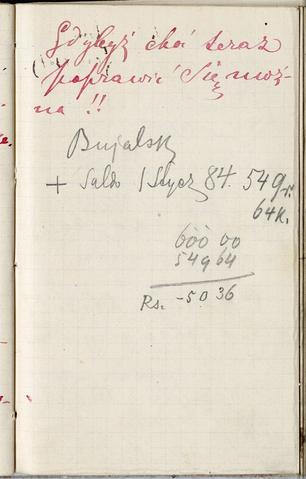 Gdybyż choć teraz
poprawić się moż-
na !!
Bujalsk
+ Saldo 1 Stycz 84. 549 r.
64 k.
600 00
549 64
Rs. -50 36